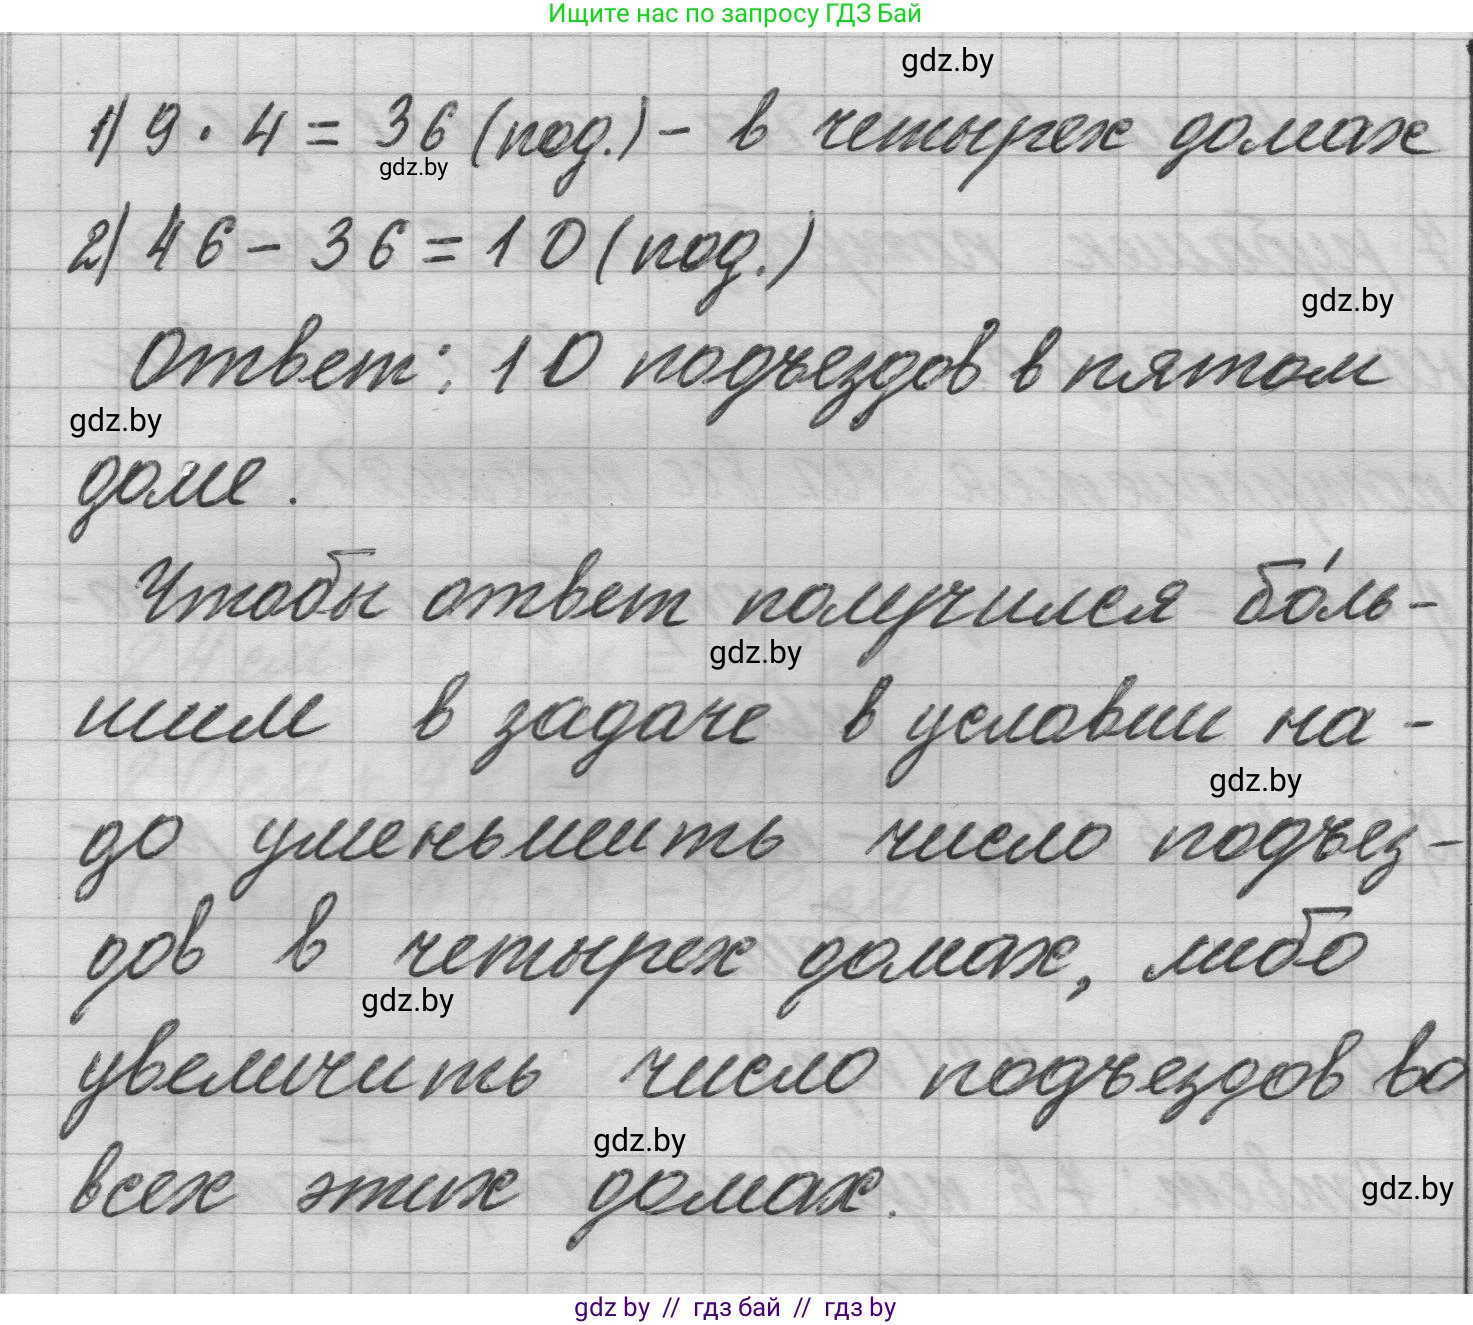 Ищите нас по запросу ГДЗ Бай
gdz.by
1) 9 · 4 = 36 (под.) - в четырех домах
gdz.by
2) 46 - 36 = 10 (под.)
gdz.by
Ответ: 10 подъездов в пятом
gdz.by
доме.
Чтобы ответ получился бо́ль-
gdz.by
шим в задаче в условии на-
gdz.by
до уменьшить число подъез-
дов в четырех домах, либо
gdz.by
увеличить число подъездов во
gdz.by
всех этих домах.
gdz.by
gdz by // гдз бай // гдз by